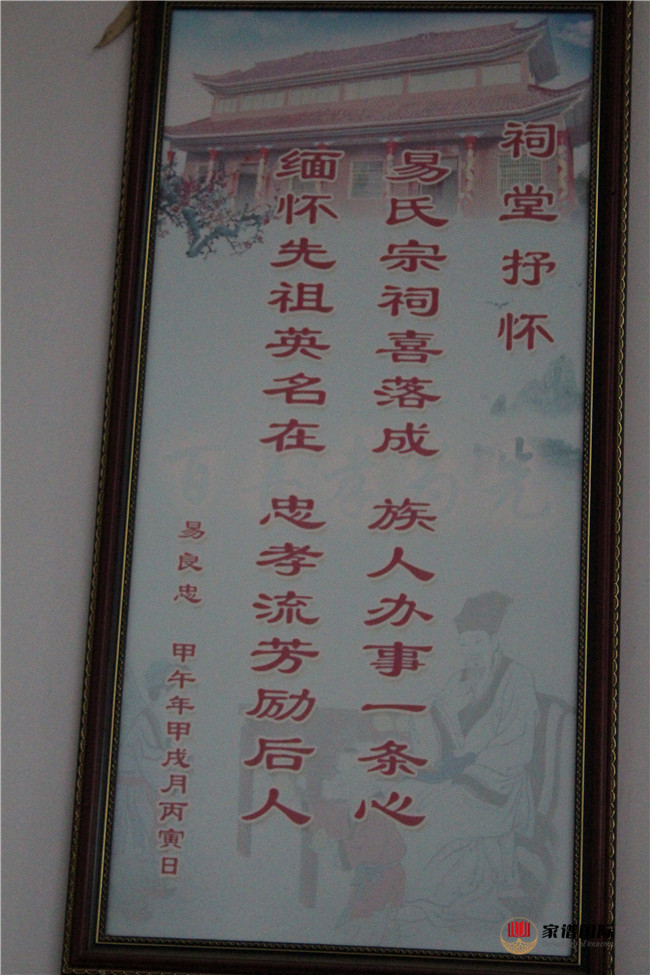 祠堂抒怀
易氏宗祠喜落成 族人办事一条心
缅怀先祖英名在 忠孝流芳励后人
易良忠 甲午年甲戌月丙寅日
百善孝为先
家谱国际